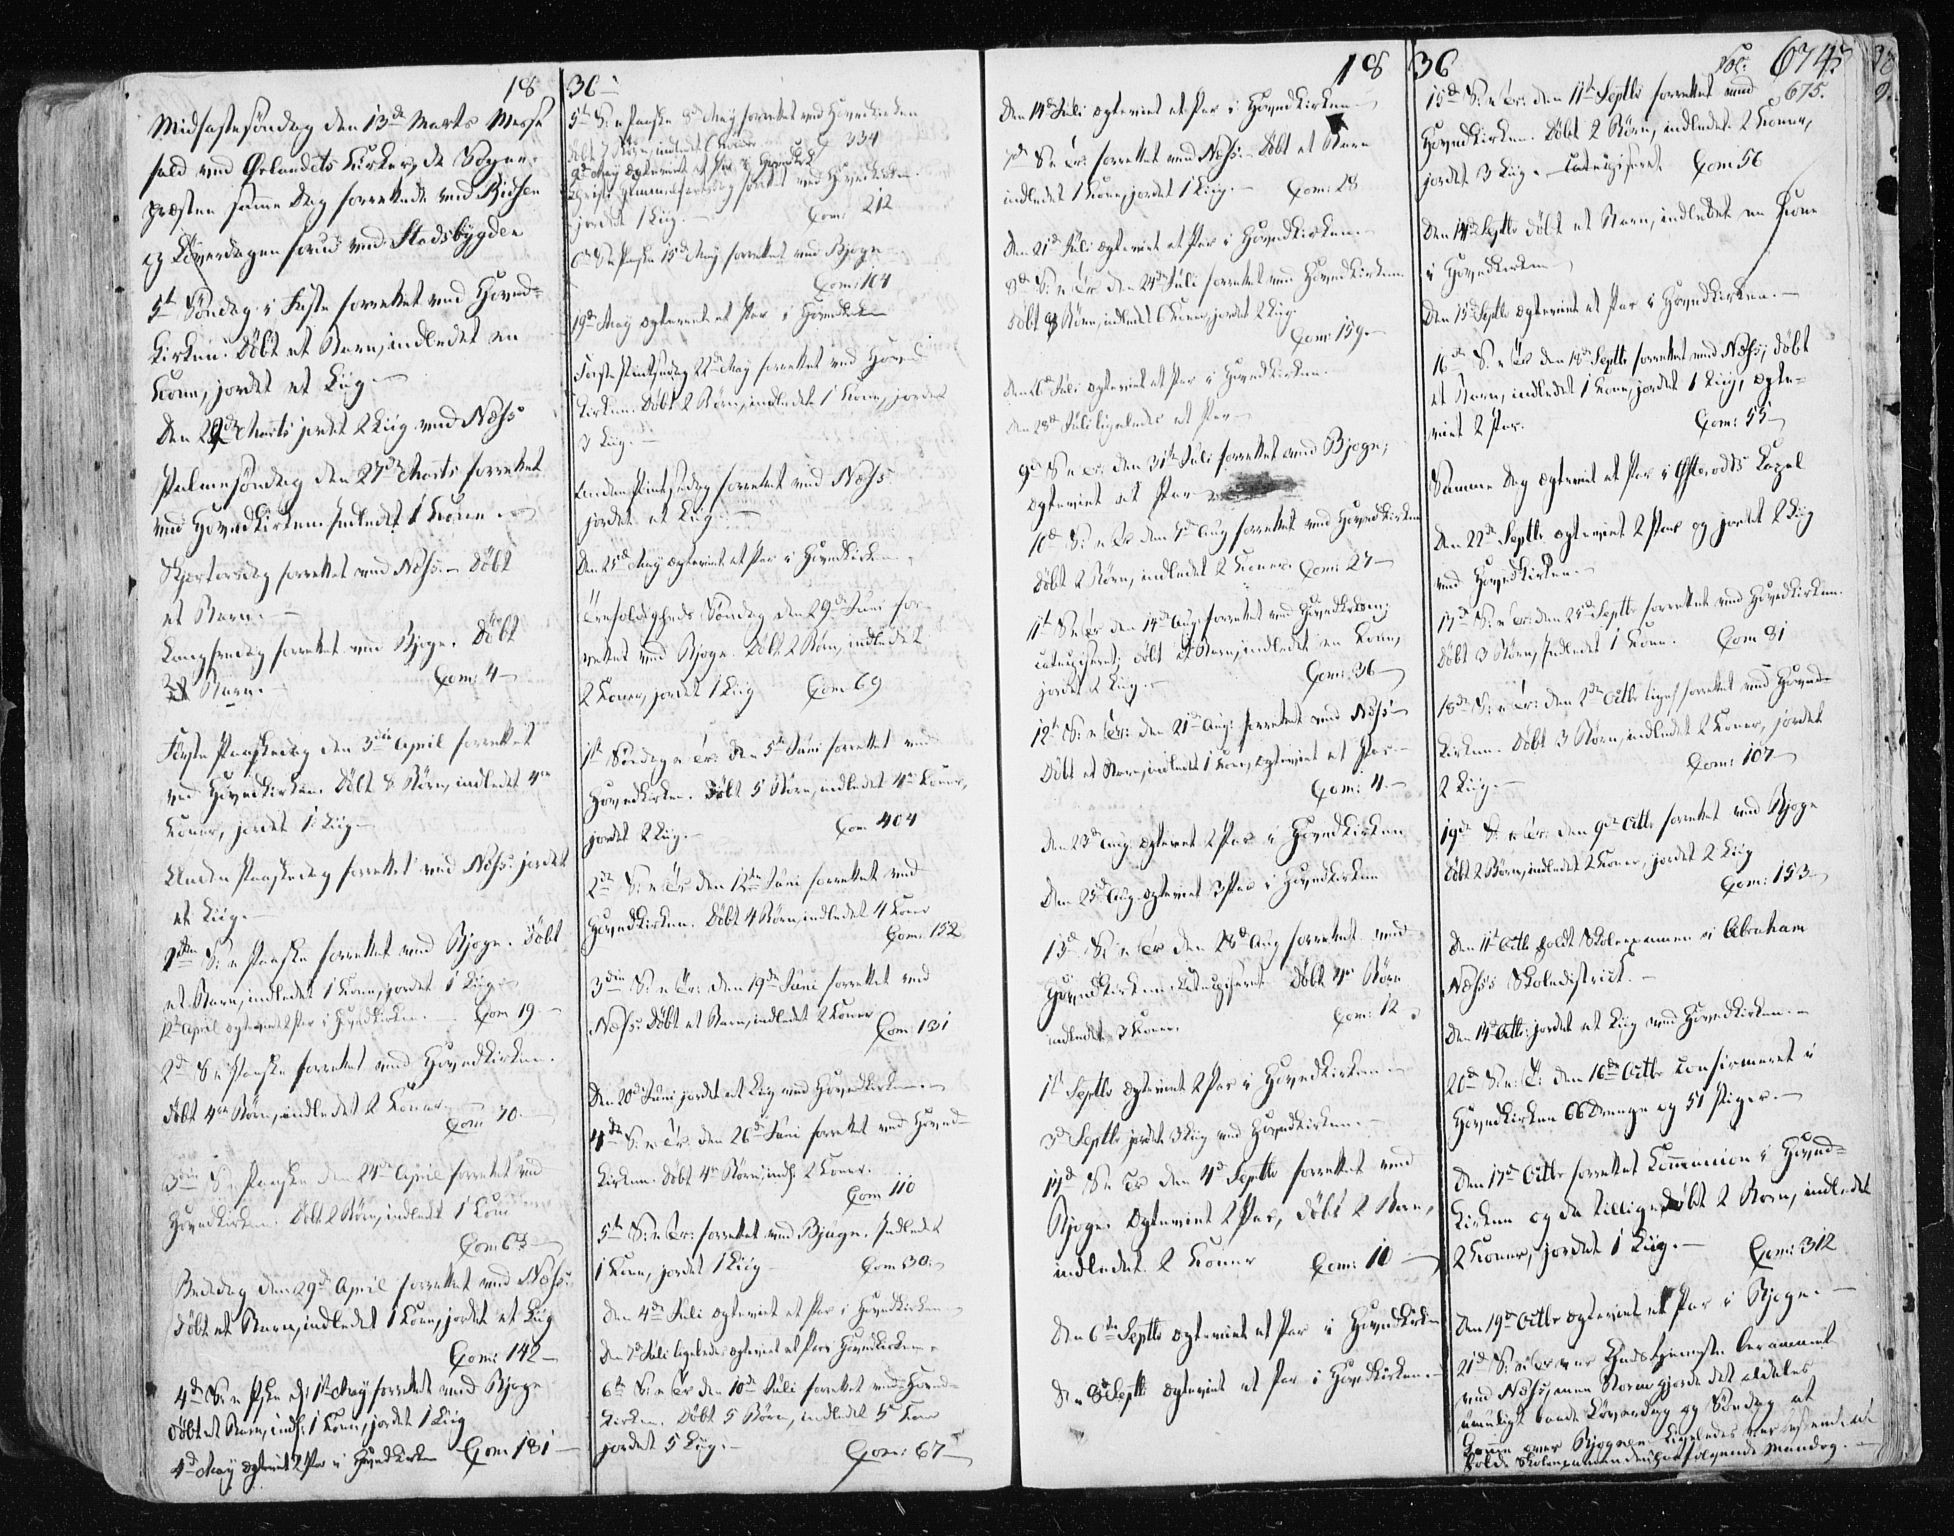 1836
Midfastesöndag den 13de Marts Messe-
fald ved Ørlandets Kirker, da Sogne-
præsten samme Dag forrettede ved Bidsen
og Löverdagen forud ved Stadsbygden
5te Söndag i Faste forrettet ved Hoved-
kirken. Döbt et Barn, indledet en
Kone, jordet et Liig.
Den 29de Marts jordet 2 Liig ved Næss
Palmesöndag den 27de Marts forrettet
ved Hovedkirken. Indledet 1 Kone.
Skjertorsdag forrettet ved Næss. Döbt
et Barn.
Langfredag forrettet ved Bjogn. Döbt
Barn. Com: 4
Förste Paaskedag den 3die April forrettet
ved Hovedkirken. Döbt 8 Börn, indledet 4re
Koner, jordet 1 Liig.
Anden Paaskedag forrettet ved Næss. jordet
et Liig.
1ste S: e Paaske forrettet ved Bjogn. Döbt
et Barn, indledet 1 Kone, jordet 1 Liig.
12te April egteviet 2 Par i Hovedkirken. Com 19
2den S e Paaske forrettet ved Hovedkirken.
Döbt 4re Börn, indledet 2 Koner.
Com 70.
3die S e Paaske den 24de April forrettet ved
Hovedkirken. Döbt 2 Börn, indledet 1 Kone
Com 63
Bededag den 29de April forrettet ved Næss.
Döbt et Barn, indledet 1 Kone, jordet et Liig
Com: 142
4de S: e Pske d: 1ste May forrettet ved Bjogn
Döbt et Barn, indl: 1 Kone, jordet 1 Liig
4de May egteviet 2 Par i Hovedkirken Com 181
5te S: e Paaske 8de May forrettet ved Hovedkirken
Döbt 7 Börn, indledet 6 Koner C 334
9de May egteviet et Par i Hovedk.
Christi Himmelfartsdag forrettet ved Hovedkirken.
jordet 1 Liig. Com: 212
6te S e Paaske 15de May forrettet ved Bjogn
Com: 104
19de May egteviet et Par i Hovedkirken
Förste Pintsedag 22de May forrettet ved Hoved
kirken. Döbt 2 Börn, indledet 1 Kone, jordet
3 Liig.
Anden Pintsedag forrettet ved Næss
jordet et Liig.
Den 25de May egteviet et Par i Hovedkirken.
Trefoldigheds Söndag den 29de Juni for-
rettet ved Bjogn. Döbt 2 Börn, indledet
2 Koner, jordet 1 Liig Com 69
1ste Söndag e Tr: den 5te Juni forrettet ved
Hovedkirken. Döbt 5 Börn, indledet 4re Koner,
jordet 2 Liig. Com 404
2den S: e Tr: den 12te Juni forrettet ved
Hovedkirken. Döbt 4 Börn, indledet 4 Koner
Com: 152
3die S: e Tr: den 19de Juni forrettet ved
Næss. Döbt et Barn, indledet 2 Koner
Com: 131
Den 20de Juni jordet et Liig ved Hovedkirken.
4de S: e Tr. den 26de Juni forrettet ved Hoved-
kirken. Döbt 4re Börn, indl: 2 Koner.
Com 110
5te S: e Tr: forrettet ved Bjugn. Indledet
1 Kone, jordet 1 Liig Com 30.
Den 4de Juli egteviet et Par i Hovedkirken
Den 7de Juli ligeledes egteviet et Par i Hovedkirken.
6te S: e Tr den 10de Juli forrettet ved Hoved-
kirken. Döbt 5 Börn, indledet 5 Koner
jordet 5 Liig. Com: 67
1836 Fol: 674.
675.
Den 14de Juli egteviet et Par i Hovedkirken
7de S e Tr: forrettet ved Næss. Döbt et Barn
indledet 1 Kone, jordet 1 Liig. Com: 28
Den 21de Juli egteviet et Par i Hovedkirken.
8de S: e Tr: den 24de Juli forrettet ved Hovedkirken
Döbt 8 Börn, indledet 6 Koner, jordet 2 Liig.
Com: 159.
Den 26de Juli egteviet et Par i Hovedkirken.
Den 28de Juli ligeledes et Par
9de S e Tr: den 31te Juli forrettet ved Bjogn;
egteviet et Par
10de S: e Tr den 7de Aug forrettet ved Hovedkirken
Döbt 2 Börn, indledet 2 Koner. Com: 27
11te S e Tr den 14de Aug: forrettet ved Hovedkirken;
catechiseret; döbt et Barn, indledet en Kone,
jordet 2 Liig. Com: 36
12te S: e Tr: den 21de Aug: forrettet ved Næss
Döbt et Barn, indledet 1 Kone, egteviet et Par
Com: 4.
Den 23de Aug: egteviet 2 Par i Hovedkirken
Den 25de Aug: egteviet 3 Par i Hovedkirken
13de S: e Tr den 28de Aug forrettet ved
Hovedkirken. Catechiseret Döbt 4re Börn
indledet 3 Koner. Com: 12
1ste Septbr egteviet 2 Par i Hovedkirken
3de Septbr jordet 3 Liig ved Hovedkirken.
14de S e Tr den 4de Septbr forrettet ved
Bjogn. Egteviet 2 Par, döbt 2 Börn,
indledet 2 Koner Com: 10
Den 6te Septbr egteviet et Par i Hovedkirken
Den 8de Septbr egteviet et Par i Hovedkirken.
15de S: e Tr: den 11te Septbr forrettet ved
Hovedkirken. Döbt 2 Börn, indledet 2 Koner,
jordet 3 Liig. Catechiseret Com 56
Den 14de Septbr döbt et Barn, indledet en Kone
i Hovedkirken
Den 15de Septbr egteviet et Par i Hovedkirken.
16de S: e Tr den 18de Septbr forrettet ved Næss; döbt
et Barn, indledet 1 Kone, jordet 1 Liig, egte-
viet 2 Par. Com: 55
Samme Dag egteviet et Par i Capel
Den 22de Septbr egteviet 2 Par og jordet 2 Liig
ved Hovedkirken.
17de S: e Tr: den 25de Septbr forrettet ved Hovedkirken.
Döbt 3 Börn, Indledet 1 Kone. Com 81
18de S: e Tr: den 2den Octbr forrettet ved Hoved-
kirken. Döbt 3 Börn, indledet 2 Koner, jordet
2 Liig. Com: 107
19de S: e Tr: den 9de Octbr forrettet ved Bjogn
Döbt 2 Börn, indledet 2 Koner, jordet 2 Liig
Com: 153
Den 11te Octbr holdt Skoleexamen i Abraham
Næss's Skoledistrict.
Den 14de Octbr: jordet et Liig ved Hovedkirken.
20de S: e: T: den 16de Octbr Confirmeret i
Hovedkirken 66 Drenge og 51 Piger.
Den 17de Octbr forrettet Communion i Hoved-
kirken og da tillige döbt 2 Börn, indledet
2 Koner, jordet 1 Liig. Com: 312
Den 19de Octbr egteviet et Par i Bjogn.
21de S: e Tr var Gudstjeneste berammet
ved Næss, men Storm gjorde det aldeles
umuligt baade Löverdag og Söndag at
komme over Bjognen. Ligeledes
holde Skoleexamen den paafölgende Mandag.